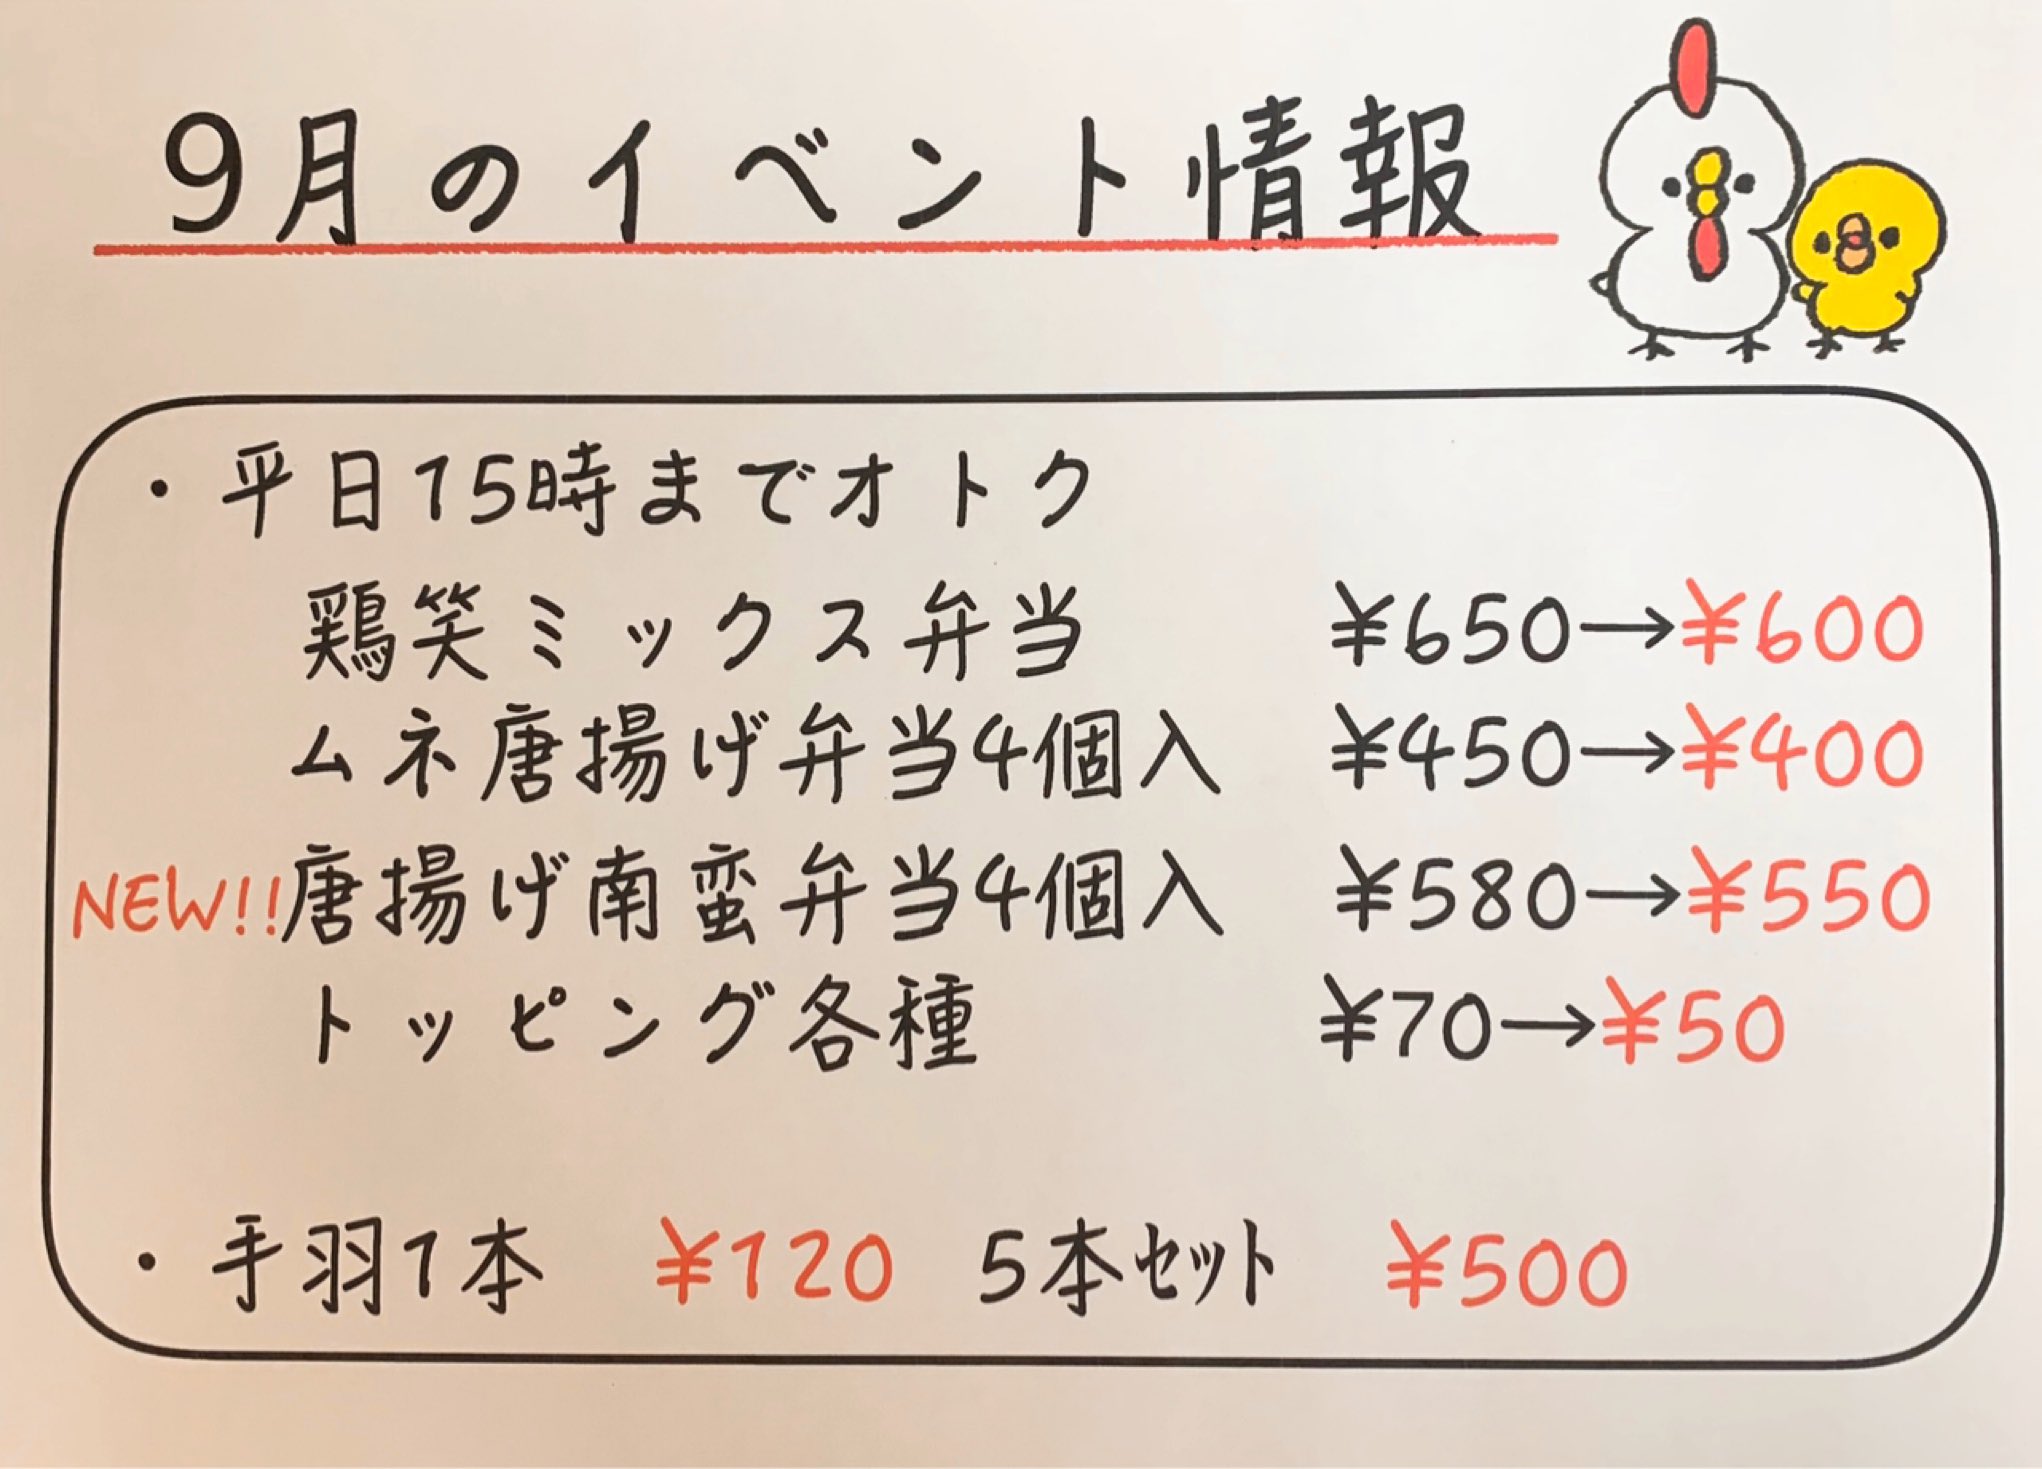 9月のイベント情報
・平日15時までオトク
鶏笑ミックス弁当 ¥650→¥600
ムネ唐揚げ弁当4個入 ¥450→¥400
NEW!!唐揚げ南蛮弁当4個入 ¥580→¥550
トッピング各種 ¥70→¥50
・手羽1本 ¥120 5本ｾｯﾄ ¥500